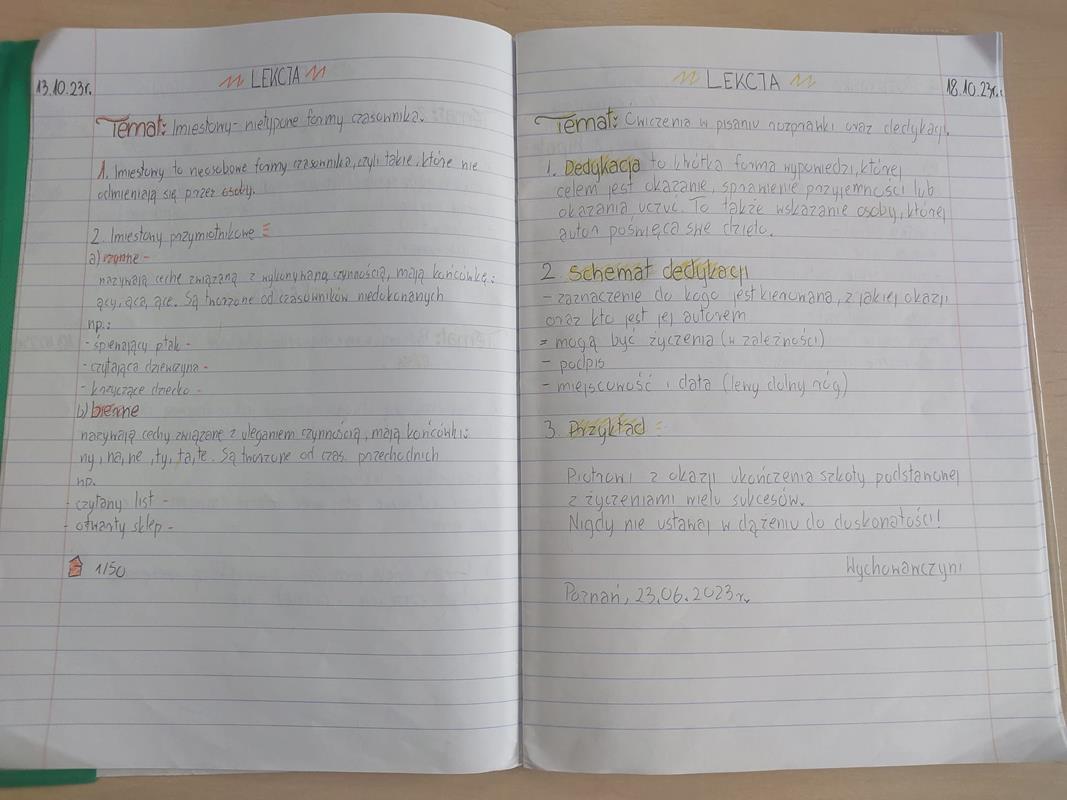 13.10.23r.
LEKCJA
Temat: Imiesłowy- nietypowe formy czasownika.
1. Imiesłowy to nieosobowe formy czasownika, czyli takie, które nie
odmieniają się przez osoby.
2. Imiesłowy przymiotnikowe
a) czynne -
nazywają cechę związaną z wykonywaną czynnością, mają końcówkę:
ący, ąca, ące. Są tworzone od czasowników niedokonanych
np.:
- śpiewający ptak -
- czytająca dziewczyna -
- krzyczące dziecko -
b) bierne
nazywają cechy związane z uleganiem czynnością, mają końcówki:
ny, na, ne, ty, ta, te. Są tworzone od czas. przechodnich
np.
- czytany list -
- otwarty sklep -
1/50
LEKCJA
18.10.23r.
Temat: Ćwiczenia w pisaniu rozprawki oraz dedykacji.
1. Dedykacja to krótka forma wypowiedzi, której
celem jest okazanie, sprawienie przyjemności lub
okazania uczuć. To także wskazanie osoby, której
autor poświęca swe dzieło.
2. Schemat dedykacji
- zaznaczenie do kogo jest kierowana, z jakiej okazji
oraz kto jest jej autorem
- mogą być życzenia (w zależności)
- podpis
- miejscowość i data (lewy dolny róg)
3. Przykład
Piotrowi z okazji ukończenia szkoły podstawowej
z życzeniami wielu sukcesów.
Nigdy nie ustawaj w dążeniu do doskonałości!
Wychowawczyni
Poznań, 23.06.2023r.